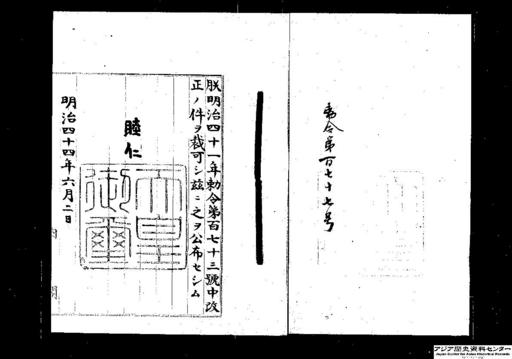 勅令第百七十七号
朕明治四十一年勅令第百七十三號中改
正ノ件ヲ裁可シ茲ニ之ヲ公布セシム
睦仁
天皇御璽
明治四十四年六月二日
アジア歴史資料センター
Japan Center for Asian Historical Records